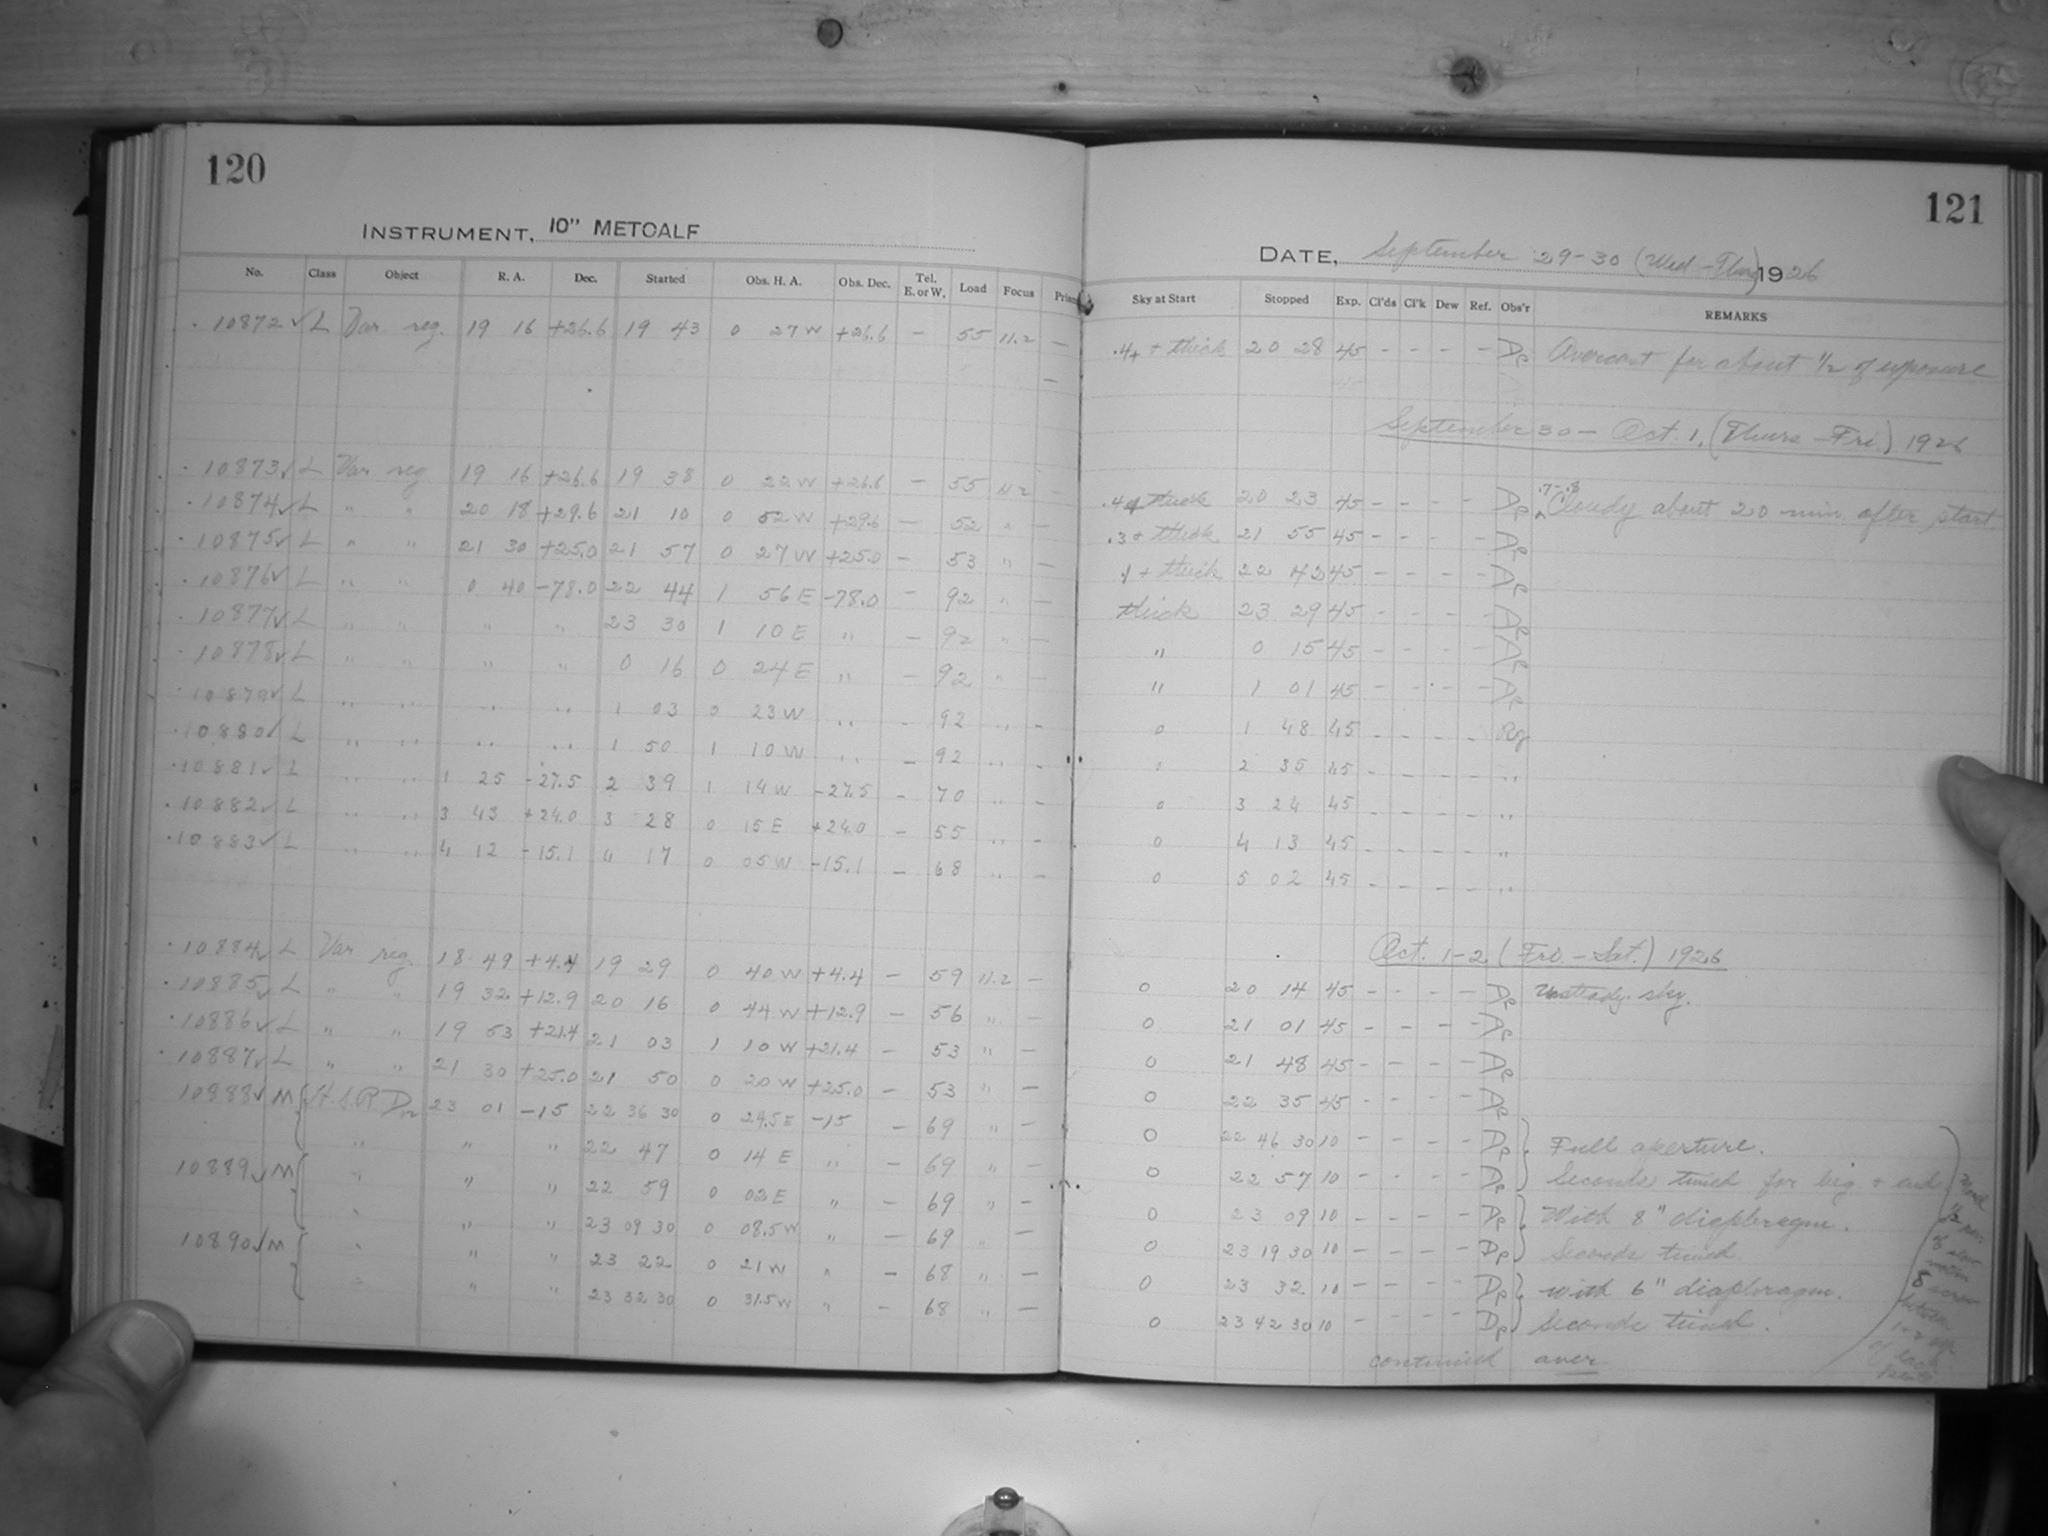 120
INSTRUMENT, 10" METCALF
No. Class Object R. A. Dec. Started Obs. H. A. Obs. Dec. Tel. E. or W. Load Focus Prism
10872 ✓ L Var reg. 19 16 +26.6 19 43 0 27 W +26.6 — 55 11.2 —
10873 ✓ L Var reg 19 16 +26.6 19 38 0 22 W +26.6 — 55 11.2 —
10874 ✓ L " " 20 18 +29.6 21 10 0 52 W +29.6 — 52 " —
10875 ✓ L " " 21 30 +25.0 21 57 0 27 W +25.0 — 53 " —
10876 ✓ L " " 0 40 -78.0 22 44 1 56 E -78.0 — 92 " —
10877 ✓ L " " " " 23 30 1 10 E " — 92 " —
10878 ✓ L " " " " 0 16 0 24 E " — 92 " —
10879 ✓ L " " " " 1 03 0 23 W " — 92 " —
10880 ✓ L " " " " 1 50 1 10 W " — 92 " —
10881 ✓ L " " 1 25 -27.5 2 39 1 14 W -27.5 — 70 " —
10882 ✓ L " " 3 43 +24.0 3 28 0 15 E +24.0 — 55 " —
10883 ✓ L " " 4 12 -15.1 4 17 0 05 W -15.1 — 68 " —
10884 ✓ L Var reg 18 49 +4.4 19 29 0 40 W +4.4 — 59 11.2 —
10885 ✓ L " " 19 32 +12.9 20 16 0 44 W +12.9 — 56 " —
10886 ✓ L " " 19 53 +21.4 21 03 1 10 W +21.4 — 53 " —
10887 ✓ L " " 21 30 +25.0 21 50 0 20 W +25.0 — 53 " —
10888 ✓ M H.S.P 23 01 -15 22 36 30 0 24.5 E -15 — 69 " —
" " " 22 47 0 14 E " — 69 " —
10889 ✓ M " " " 22 59 0 02 E " — 69 " —
" " " 23 09 30 0 08.5 W " — 69 " —
10890 ✓ M " " " 23 22 0 21 W " — 68 " —
" " " 23 32 30 0 31.5 W " — 68 " —
121
DATE, September 29-30 (Wed-Thur) 1926
Sky at Start Stopped Exp. Cl'ds Cl'k Dew Ref. Obs'r REMARKS
.4+ + thick 20 28 45 - - - - Ap Overcast for about 1/2 of exposure
September 30 — Oct. 1, (Thurs — Fri.) 1926
.4 + thick 20 23 45 - - - - Ap .7-.8 Cloudy about 20 min after start
.3 + thick 21 55 45 - - - - Ap
.1 + thick 22 42 45 - - - - Ap
thick 23 29 45 - - - - Ap
" 0 15 45 - - - - Ap
" 1 01 45 - - - - Ap
0 1 48 45 - - - - Rg
0 2 35 45 - - - - "
0 3 24 45 - - - - "
0 4 13 45 - - - - "
0 5 02 45 - - - - "
Oct. 1-2 (Fri. - Sat.) 1926
0 20 14 45 - - - - Ap Unsteady sky.
0 21 01 45 - - - - Ap
0 21 48 45 - - - - Ap
0 22 35 45 - - - - Ap
0 22 46 30 10 - - - - Ap Full aperture.
0 22 57 10 - - - - Ap Seconds timed for beg. & end
0 23 09 10 - - - - Ap With 8" diaphragm.
0 23 19 30 10 - - - - Ap Seconds timed.
0 23 32 10 - - - - Ap With 6" diaphragm.
0 23 42 30 10 - - - - Ap Seconds timed.
continued over